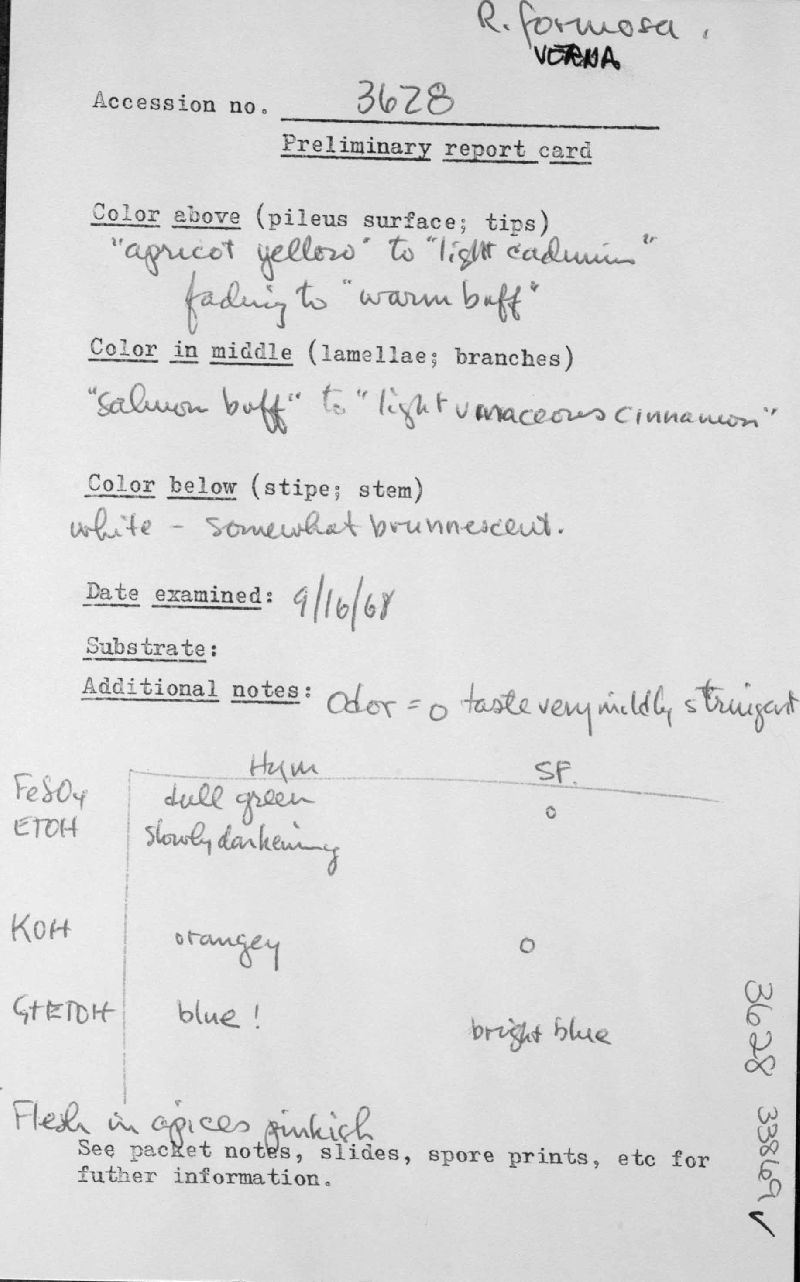 R. formosa.
VERNA
Accession no. 3628
Preliminary report card
Color above (pileus surface; tips)
"apricot yellow" to "light cadmium"
fading to "warm buff"
Color in middle (lamellae; branches)
"salmon buff" to "light vinaceous cinnamon"
Color below (stipe; stem)
white - somewhat brunnescent.
Date examined: 9/16/68
Substrate:
Additional notes: Odor = 0 taste very mildly stringent
Hym SF.
FeSO4 dull green 0
ETOH slowly darkening
KOH orangey 0
G+ETOH blue! bright blue
Flesh in apices pinkish
See packet notes, slides, spore prints, etc for
futher information.
3628 33869 ✓